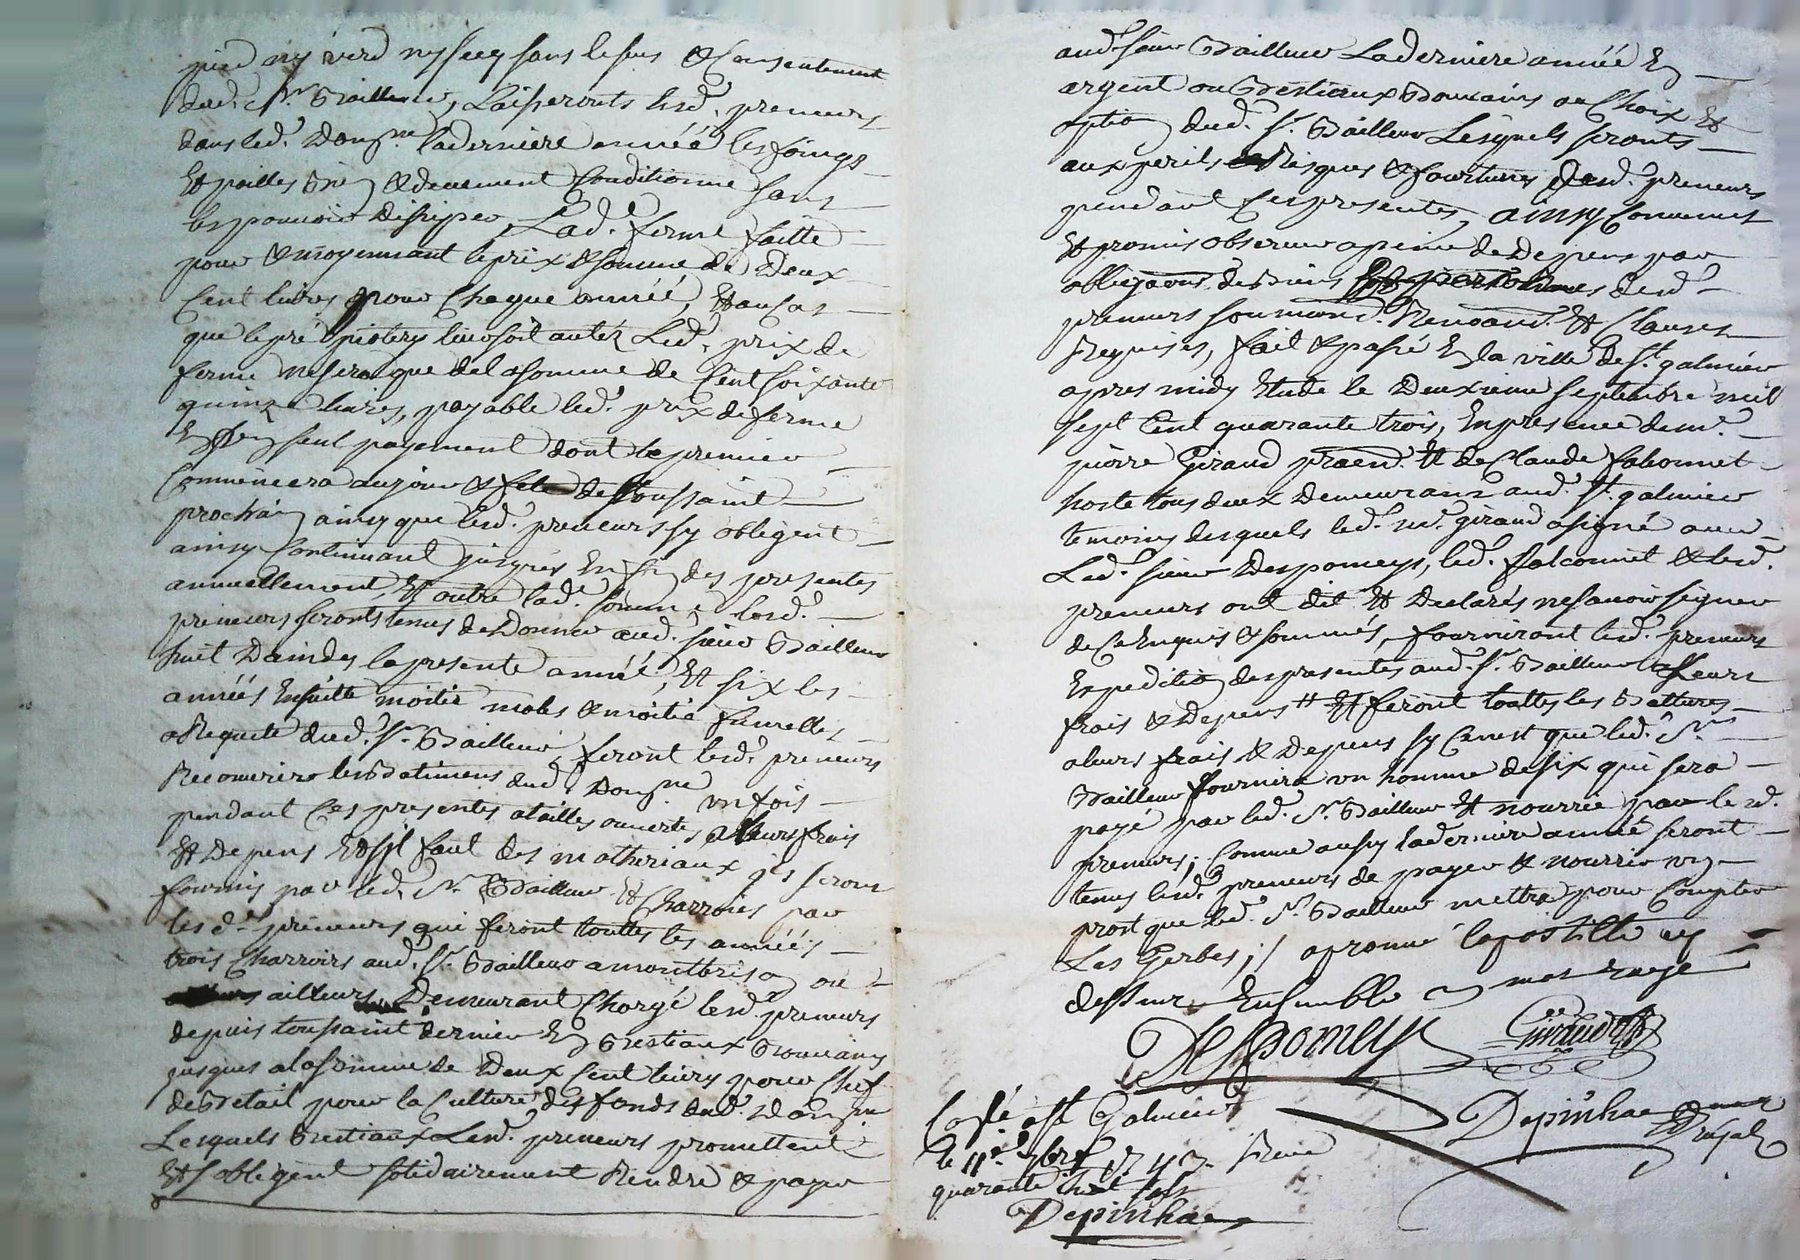 pied ny verd ny secq sans le sus & Consentement
dud. Sr. Bailleur, Laisseronts lesd. preneurs
dans led. Domne. la derniere année les foings
Et pailles & deuement Conditionné sans
les pouvoir dissiper, Lad. ferme faitte
pour & moyennant le prix & somme de Deux
Cent livres pour Chaque année, Et au Cas
que le pré soit led. prix de
ferme ne sera que de la somme de Cent soixante
quinze livres, payable led. prix de ferme
En seul payement dont le premier
Commencera au jour & fete de toussaint
prochain ainsy que lesd. preneurs s'y obligent
ainsy Continuant jusques En fin des presentes
annuellement, Et outre lad. somme lesd.
preneurs seronts tenus de Donner aud. sieur Bailleur
huit Daindes la presente année, Et six les
années Ensuitte moitié males & moitié fumelles
a Requete dud. Sr. Bailleur, feront lesd. preneurs
Recouvrire les Batimens dud. Domne un fois
pendant Ces presentes a tailles ouvertes a leurs frais
Et Depens Et s'jl faut des matheriaux jls seront
fournis par led. Sr. Bailleur & Charroiés par
les d. preneurs qui feront touttes les années
trois Charroirs aud. Sr. Bailleur a montbrison ou
ailleurs, Demeurant Chargé lesd. preneurs
depuis toussaint dernier En Bestiaux
jusques a la somme de Deux Cent livres pour Chef
de Betail pour la Culture des fonds dud. Domne
Lesquels Bestiaux Lesd. preneurs promettent
Et s'obligent solidairement Rendre & payer
aud. sieur Bailleur La derniere année En
argent ou Bestiaux au Choix &
option dud. Sr. Bailleur Lesquels seronts
aux perils Risques & fourtunes desd. preneurs
pendant Ces presentes, ainsy Convenus
Et promis observer a peine de Depens par
obligaons. de Biens desd.
preneurs soumions. Renoaons. & Clauses
Requises, fait & passé En la ville de St. galmier
apres midy Etude le Deuxieme septembre mil
sept Cent quarante trois, En presence de mr.
pierre Giraud praen. & de Claude falconnet
hoste tous deux Demeurans aud. St. galmier
temoins desquels led. mr. giraud a signé avec
Led. sieur Despomeys, led. falconnet & lesd.
preneurs ont dit & Declarés ne savoir signer
de Ce Enquis & sommés, fourniront lesd. preneurs
Expedition des presentes aud. Sr. Bailleur a Leurs
frais & Depens # Et feront touttes les Battures
a leurs frais & Depens sy Ce n'est que led. Sr.
Bailleur fournira un homme de six qui sera
payé par led. Sr. Bailleur & nourrie par lesd.
preneurs; Comme aussy la derniere année seront
tenus lesd. preneurs de payer & nourrir un
que led. Sr. Bailleur mettra pour Compter
Les Gerbes; / aprouvé l'apostille cy
dessus, Ensemble
Despomeys Giraud
Depinhac
Coslé a St Galmier
le 11e 7bre 1743. Reçu
quarante huit sols
Depinhac